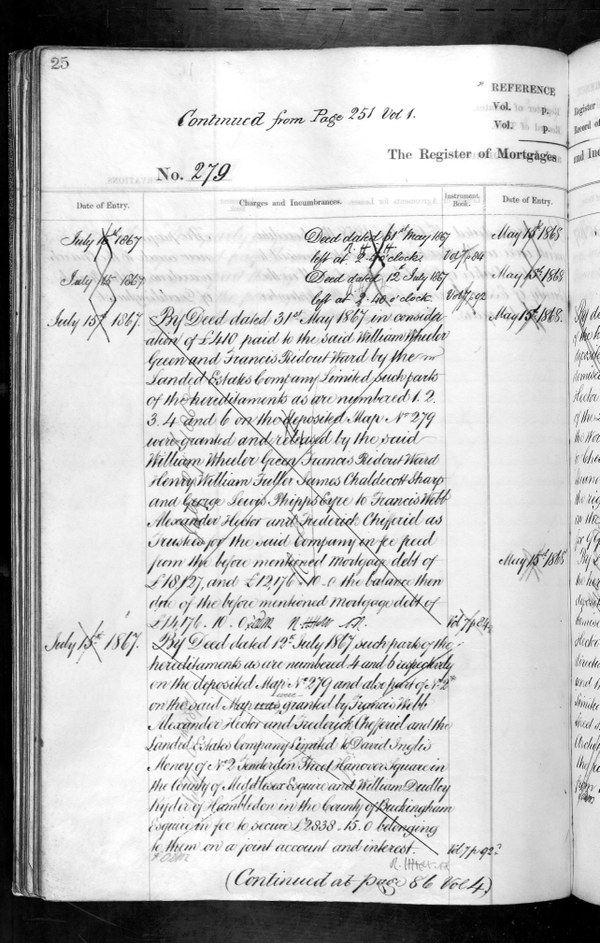 25
REFERENCE
Vol. p.
Vol. p.
Continued from Page 251 Vol 1.
The Register of Mortgages
No. 279
Date of Entry.
Charges and Incumbrances.
Instrument Book.
Date of Entry.
July 15th 1867
Deed dated 31st May 1867
May 15th 1868
left at 2.40 o'clock
Vol 7 p 84
July 15 1867
Deed dated 12th July 1867
May 15th 1868
left at 2.40 o'clock.
Vol 7 p 92
July 15th 1867.
By Deed dated 31st May 1867 in consider-
May 15th 1868.
ation of £410 paid to the said William Wheeler
Green and Francis Ridout Ward by the
Landed Estates Company Limited such parts
of the hereditaments as are numbered 1. 2.
3. 4 and 6 on the deposited Map No 279
were granted and released by the said
William Wheeler Green Francis Ridout Ward
Henry William Fuller James Chaldecott Sharp
and George Lewis Phipps Eyre to Francis Webb
Alexander Hector and Frederick Chifferiel as
Trustees for the said Company in fee freed
from the before mentioned Mortgage debt of
May 15th 1868
£18,127, and £12176 - 10. 0 the balance then
due of the before mentioned Mortgage debt of
£14176. 10.
Vol 7 p 84
July 15th 1867.
By Deed dated 12th July 1867 such parts of the
hereditaments as are numbered 4 and 6 respectively
on the deposited Map No 279 and also part of No 2
on the said Map was were granted by Francis Webb
Alexander Hector and Frederick Chifferiel and the
Landed Estates Company Limited to David Inglis
Money of No 2 Tenterden Street Hanover Square in
the County of Middlesex Esquire and William Dudley
Ryder of Hambledon in the County of Buckingham
Esquire in fee to secure £2838 - 15. 0 belonging
to them on a joint account and interest.
Vol 7 p 92
(Continued at page 86 Vol 4)